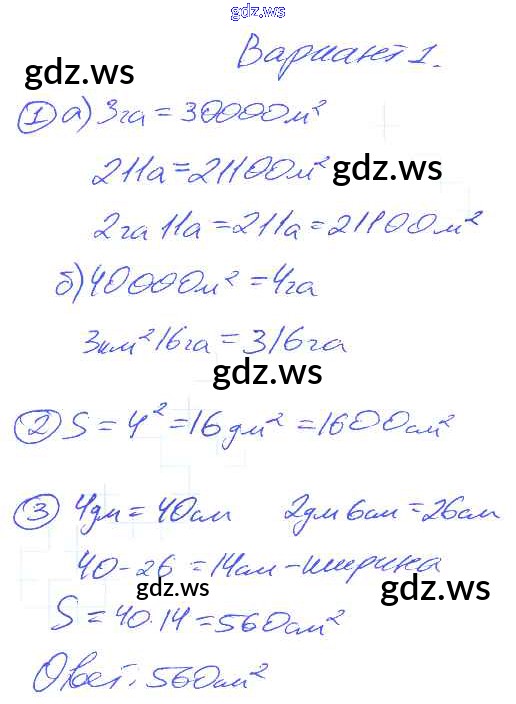 gdz.ws
Вариант 1.
gdz.ws
① а) 3га = 30000м²
211а = 21100м²
gdz.ws
2га 11а = 211а = 21100м²
б) 40000м² = 4га
3км² 16га = 316га
gdz.ws
② S = 4² = 16дм² = 1600см²
③ 4дм = 40см 2дм 6см = 26см
40 - 26 = 14см - ширина
gdz.ws
gdz.ws
S = 40·14 = 560см²
Ответ: 560см²